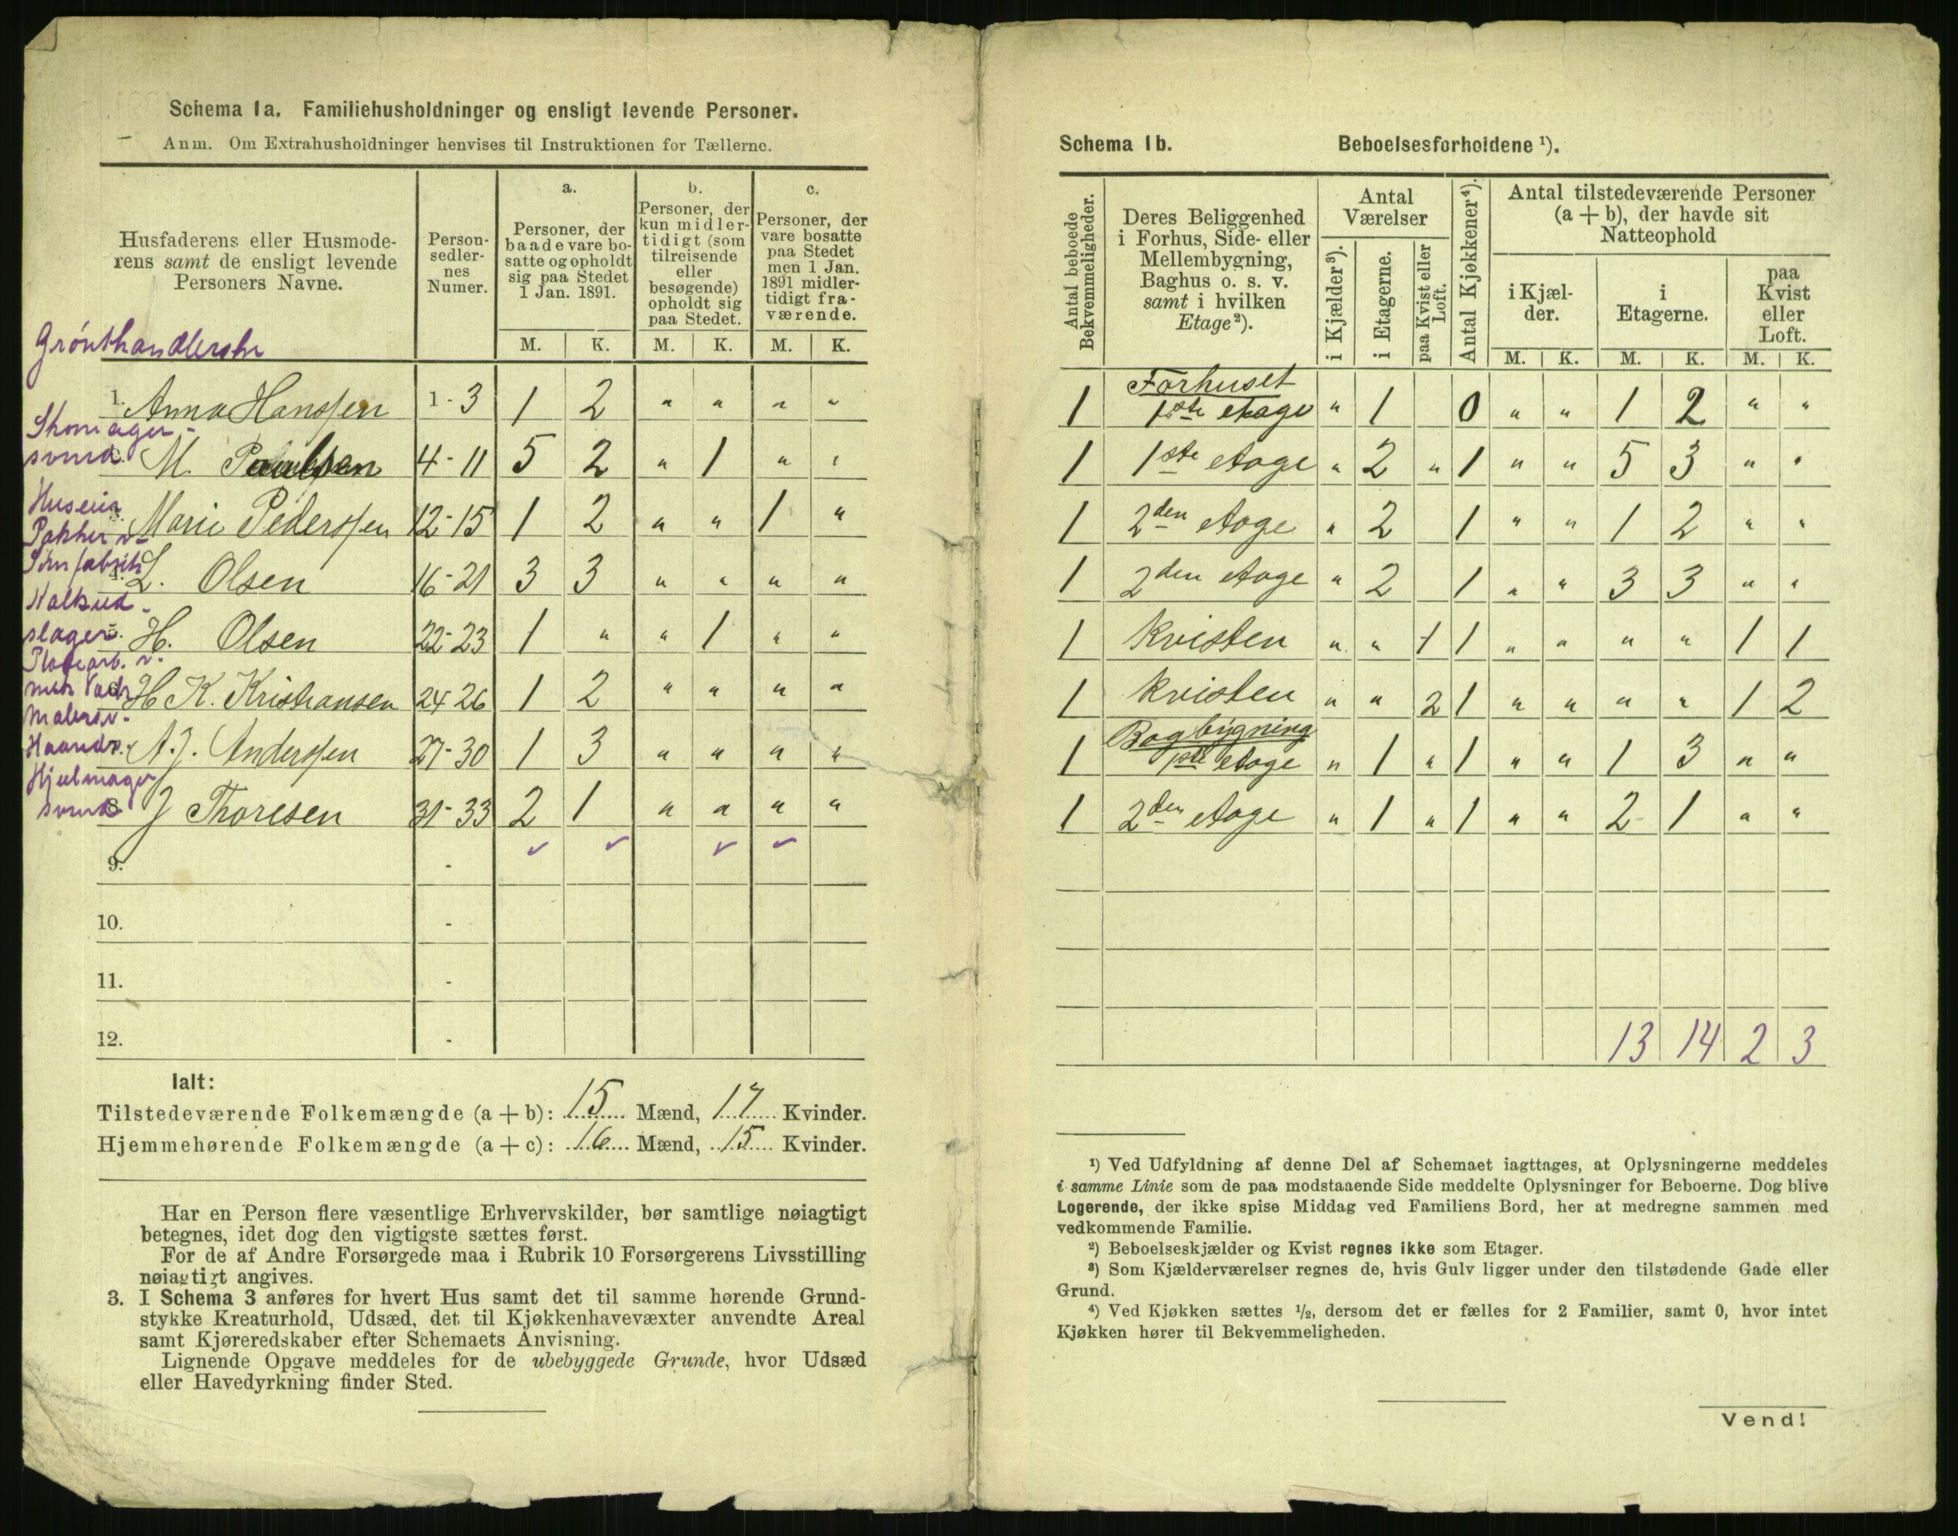 Schema 1a. Familiehusholdninger og ensligt levende Personer.
Anm. Om Extrahusholdninger henvises til Instruktionen for Tællerne.
Husfaderens eller Husmode-
rens samt de ensligt levende
Personers Navne.
Person-
sedler-
nes
Numer.
a.
Personer, der
baade vare bo-
satte og opholdt
sig paa Stedet
1 Jan. 1891.
b.
Personer, der
kun midler-
tidigt (som
tilreisende
eller
besøgende)
opholdt sig
paa Stedet.
c.
Personer, der
vare bosatte
paa Stedet
men 1 Jan.
1891 midler-
tidigt fra-
værende.
M. K. M. K. M. K.
Grønthandlerske
1. Anna Hanssen 1-3 1 2 " " " "
Skomager-
svend M. Paulsen 4-11 5 2 " 1 " "
Huseier
3. Marie Pederssen 12-15 1 2 " " 1 "
Pakker v.
4. L. Olsen 16-21 3 3 " " " "
5. H. Olsen 22-23 1 " " 1 " "
slager
6. H. K. Kristiansen 24-26 1 2 " " " "
Malersv.
A. J. Anderssen 27-30 1 3 " " " "
Hjulmager
svend 8 J Thoresen 31-33 2 1 " " " "
9. -
10. -
11. -
12. -
Ialt:
Tilstedeværende Folkemængde (a + b): 15 Mænd, 17 Kvinder.
Hjemmehørende Folkemængde (a + c): 16 Mænd, 15 Kvinder.
Har en Person flere væsentlige Erhvervskilder, bør samtlige nøiagtigt
betegnes, idet dog den vigtigste sættes først.
For de af Andre Forsørgede maa i Rubrik 10 Forsørgerens Livsstilling
nøiagtigt angives.
3. I Schema 3 anføres for hvert Hus samt det til samme hørende Grund-
stykke Kreaturhold, Udsæd, det til Kjøkkenhavevæxter anvendte Areal
samt Kjøreredskaber efter Schemaets Anvisning.
Lignende Opgave meddeles for de ubebyggede Grunde, hvor Udsæd
eller Havedyrkning finder Sted.
Schema 1b. Beboelsesforholdene ¹).
Antal beboede
Bekvemmeligheder.
Deres Beliggenhed
i Forhus, Side- eller
Mellembygning,
Baghus o. s. v.
samt i hvilken
Etage²).
Antal
Værelser
i Kjælder³).
i Etagerne.
paa Kvist eller
Loft.
Antal Kjøkkener⁴).
Antal tilstedeværende Personer
(a + b), der havde sit
Natteophold
i Kjæl-
der.
i
Etagerne.
paa
Kvist
eller
Loft.
M. K. M. K. M. K.
Forhuset
1 1ste etage " 1 0 " " 1 2 " "
1 1ste etage " 2 " 1 " " 5 3 " "
1 2den etage " 2 1 " " 1 2 " "
1 2den etage " 2 1 " " 3 3 " "
1 kvisten " " 1 1 " " " " 1 1
1 kvisten " " 2 1 " " " " 1 2
Bagbygning
1 1ste etage " 1 " 1 " " 1 3 " "
1 2den etage " 1 " 1 " " 2 1 " "
13 14 2 3
¹) Ved Udfyldning af denne Del af Schemaet iagttages, at Oplysningerne meddeles
i samme Linie som de paa modstaaende Side meddelte Oplysninger for Beboerne. Dog blive
Logerende, der ikke spise Middag ved Familiens Bord, her at medregne sammen med
vedkommende Familie.
²) Beboelseskjælder og Kvist regnes ikke som Etager.
³) Som Kjælderværelser regnes de, hvis Gulv ligger under den tilstødende Gade eller
Grund.
⁴) Ved Kjøkken sættes ½, dersom det er fælles for 2 Familier, samt 0, hvor intet
Kjøkken hører til Bekvemmeligheden.
Vend!